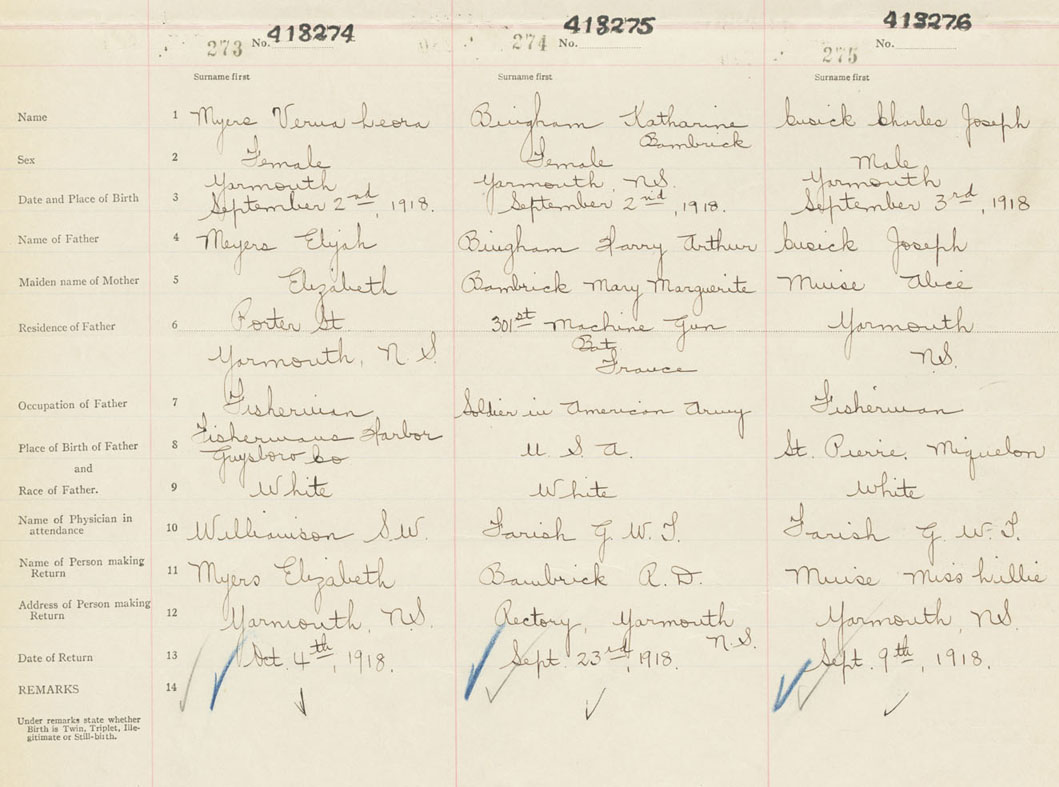 273 No. 418274 274 No. 418275 275 No. 418276
Surname first Surname first Surname first
Name 1 Myers Verna Leora Bingham Katharine Cusick Charles Joseph
Bambrick
Sex 2 Female Female Male
Yarmouth Yarmouth, N.S. Yarmouth
Date and Place of Birth 3 September 2nd, 1918. September 2nd, 1918. September 3rd, 1918
Name of Father 4 Meyers Elijah Bingham Harry Arthur Cusick Joseph
Maiden name of Mother 5 Elizabeth Bambrick Mary Marguerite Muise Alice
Residence of Father 6 Porter St. 301st Machine Gun Yarmouth
Yarmouth, N.S. Bat. N.S.
France
Occupation of Father 7 Fisherman Soldier in American Army Fisherman
Fishermans Harbor
Place of Birth of Father 8 Guysboro Co U.S.A. St. Pierre, Miquelon
and
Race of Father. 9 White White White
Name of Physician in
attendance 10 Williamson S.W. Farish G.W.T. Farish G.W.T.
Name of Person making
Return 11 Myers Elizabeth Bambrick R.D. Muise Miss Lillie
Address of Person making
Return 12 Yarmouth, N.S. Rectory, Yarmouth Yarmouth, N.S.
N.S.
Date of Return 13 Oct. 4th, 1918. Sept. 23rd, 1918. Sept. 9th, 1918.
REMARKS 14
Under remarks state whether
Birth is Twin, Triplet, Ille-
gitimate or Still-birth.